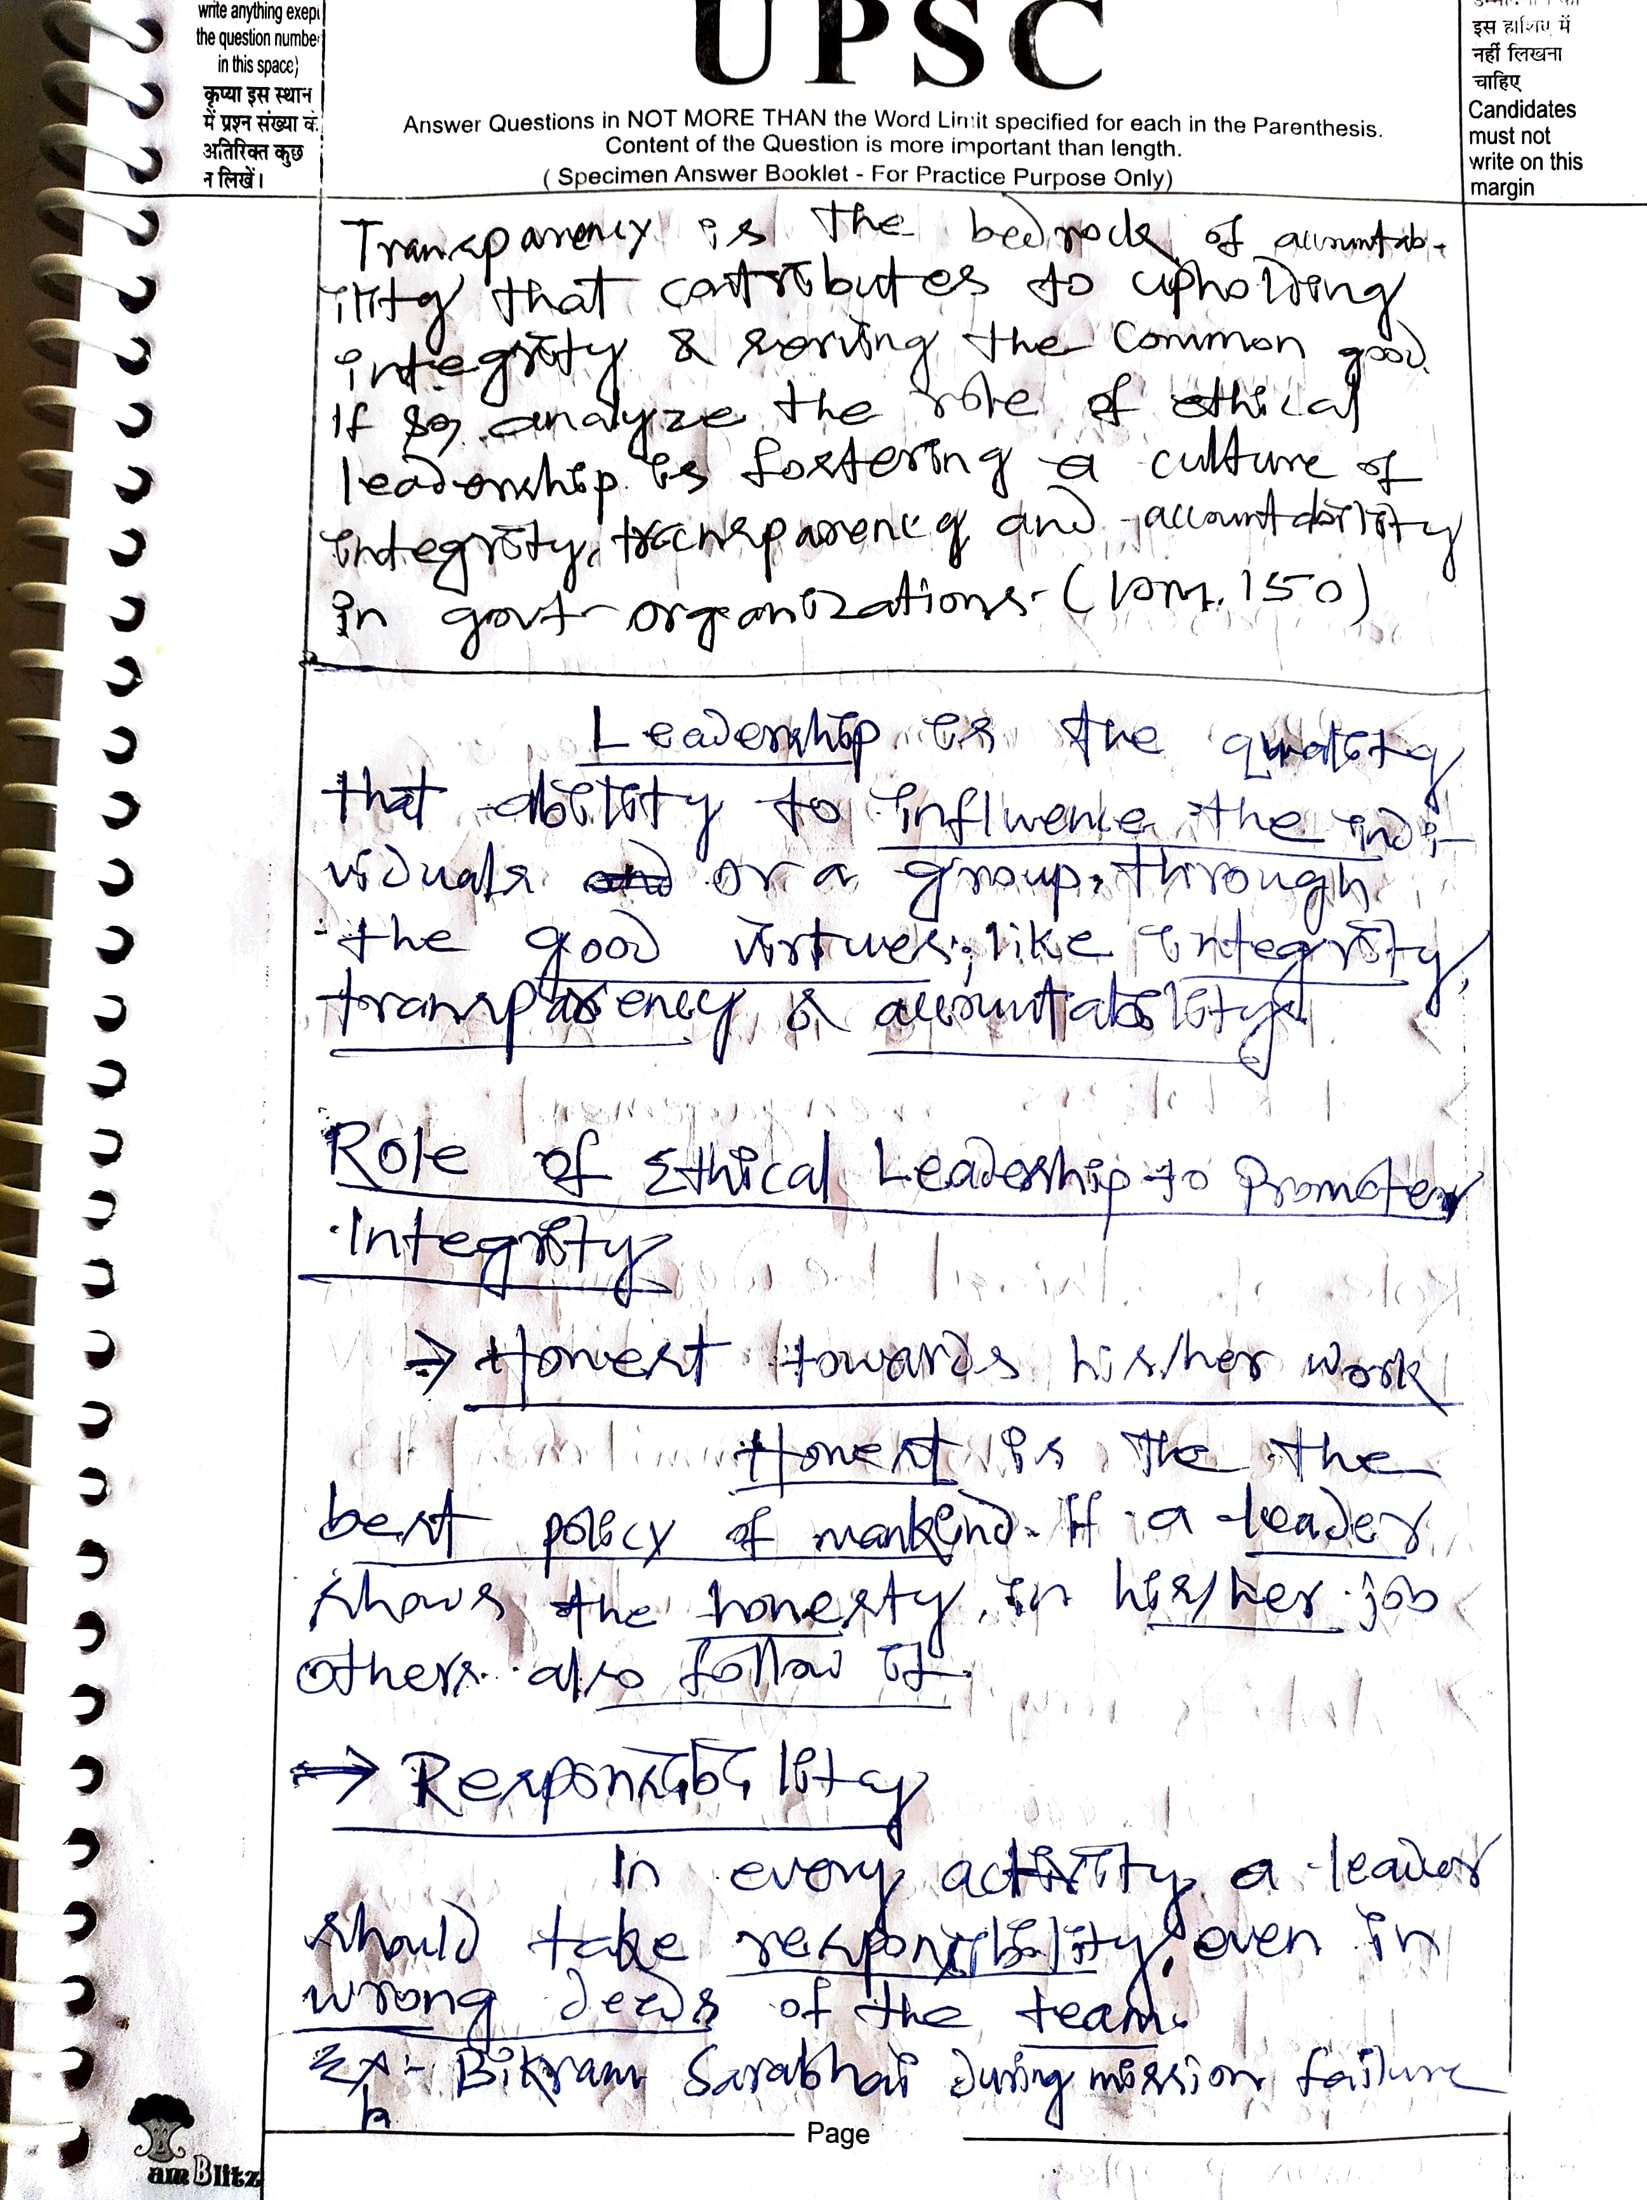 write anything exept
the question number
in this space)
कृप्या इस स्थान
में प्रश्न संख्या के
अतिरिक्त कुछ
न लिखें।
UPSC
Answer Questions in NOT MORE THAN the Word Limit specified for each in the Parenthesis.
Content of the Question is more important than length.
( Specimen Answer Booklet - For Practice Purpose Only)
इस हाशिए में
नहीं लिखना
चाहिए
Candidates
must not
write on this
margin
Transparency is the bedrock of accountab-
ility that contributes to upholding
integrity & serving the common good.
If so, analyze the role of ethical
leadership is fostering a culture of
integrity, transparency and accountability
in govt organizations. (10m, 150)
Leadership is the quality
that ability to influence the indi-
viduals or a group, through
the good virtues, like integrity,
transparency & accountability.
Role of Ethical Leadership to Promote
Integrity
⇒ Honest towards his/her work
Honest is the the
best policy of mankind. If a leader
shows the honesty, in his/her job
others also follow it.
→ Responsibility
In every activity a leader
should take responsibility, even in
wrong deeds of the team.
Ex:- Bikram Sarabhai during mission failure
Page
am Blitz